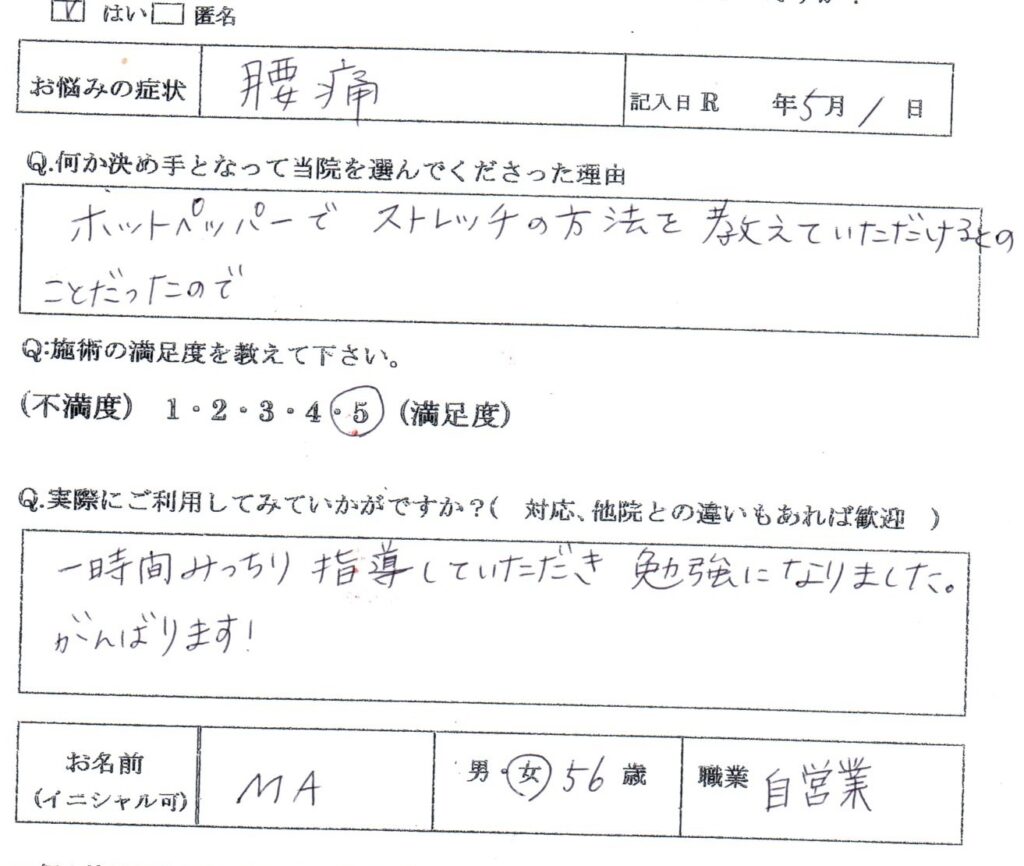 ☑ はい □ 匿名
お悩みの症状 腰痛 記入日 R 年 5月 1 日
Q.何か決め手となって当院を選んでくださった理由
ホットペッパーで ストレッチの方法を 教えていただけるとの
ことだったので
Q:施術の満足度を教えて下さい。
(不満度) 1・2・3・4・5 (満足度)
Q.実際にご利用してみていかがですか?( 対応、他院との違いもあれば歓迎 )
一時間みっちり 指導していただき 勉強になりました。
がんばります!
お名前 (イニシャル可) MA 男・女 56 歳 職業 自営業